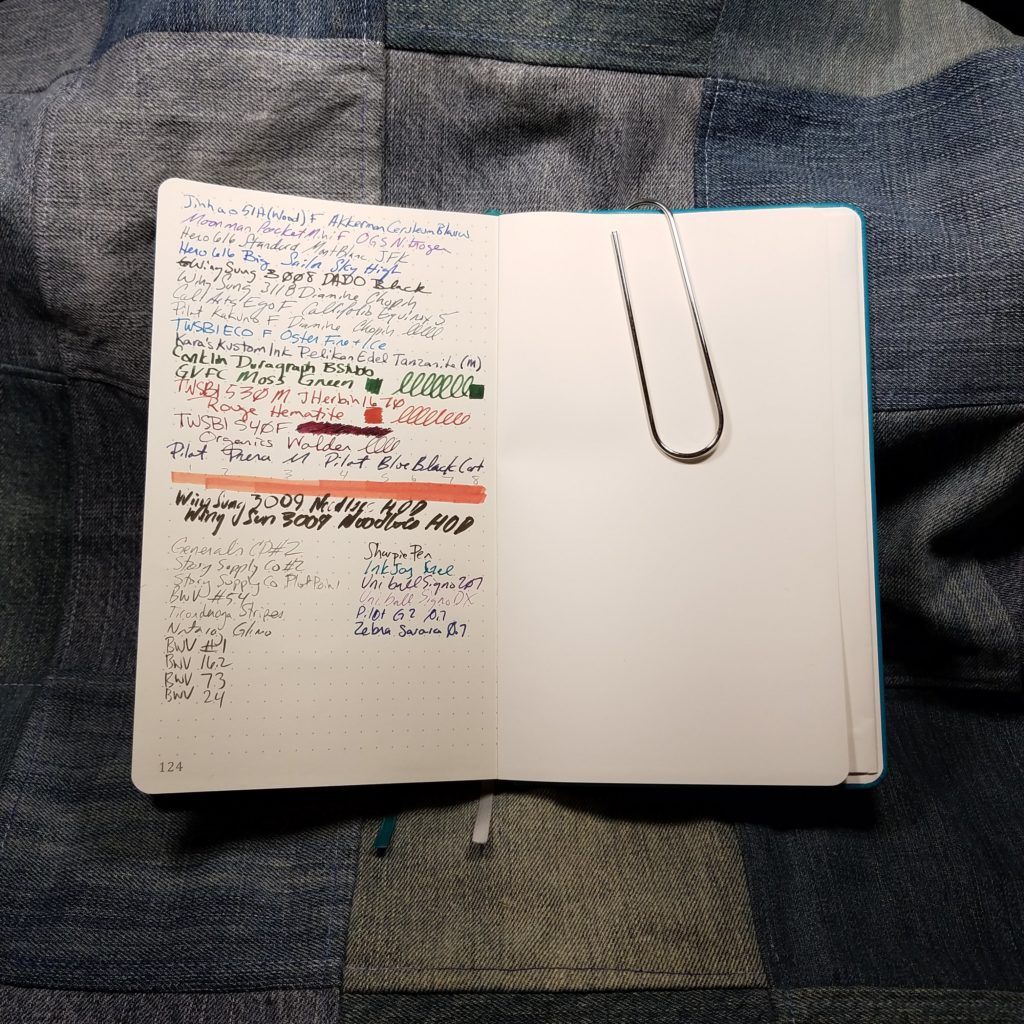 Jinhao 51A (Wood) F Akkerman Ceruleum Blauw
Moonman Pocket Mini F OGS Nitrogen
Hero 616 Standard Mont Blanc JFK
Hero 616 Big Sailor Sky High
Wing Sung 3008 DADO Black
Wing Sung 3118 Diamine Chopin
Calliarts Ego F Callifolio Equinox 5
Pilot Kakuno F Diamine Chopin
TWSBI ECO F Oster Fire + Ice
Kara's Kustom Ink Pelikan Edel Tanzanite (M)
Conklin Duragraph
GVFC Moss Green
TWSBI 530 M J Herbin 1670
Rouge Hematite
TWSBI 540 F
Organics Walden
Pilot Prera M Pilot Blue Black Cart
1 2 3 4 5 6 7 8
Wing Sung 3009 Noodlers HOD
Wing Sun 3009 Noodlers HOD
Generals CP#2
Story Supply Co #2
Story Supply Co Plot Point
BWV #54
Ticonderoga Stripes
Nataraj Glimo
BWV #1
BWV 16.2
BWV 73
BWV 24
Sharpie Pen
InkJoy Gel
Uniball Signo 207
Uniball Signo DX
Pilot G2 0.7
Zebra Sarasa 0.7
124